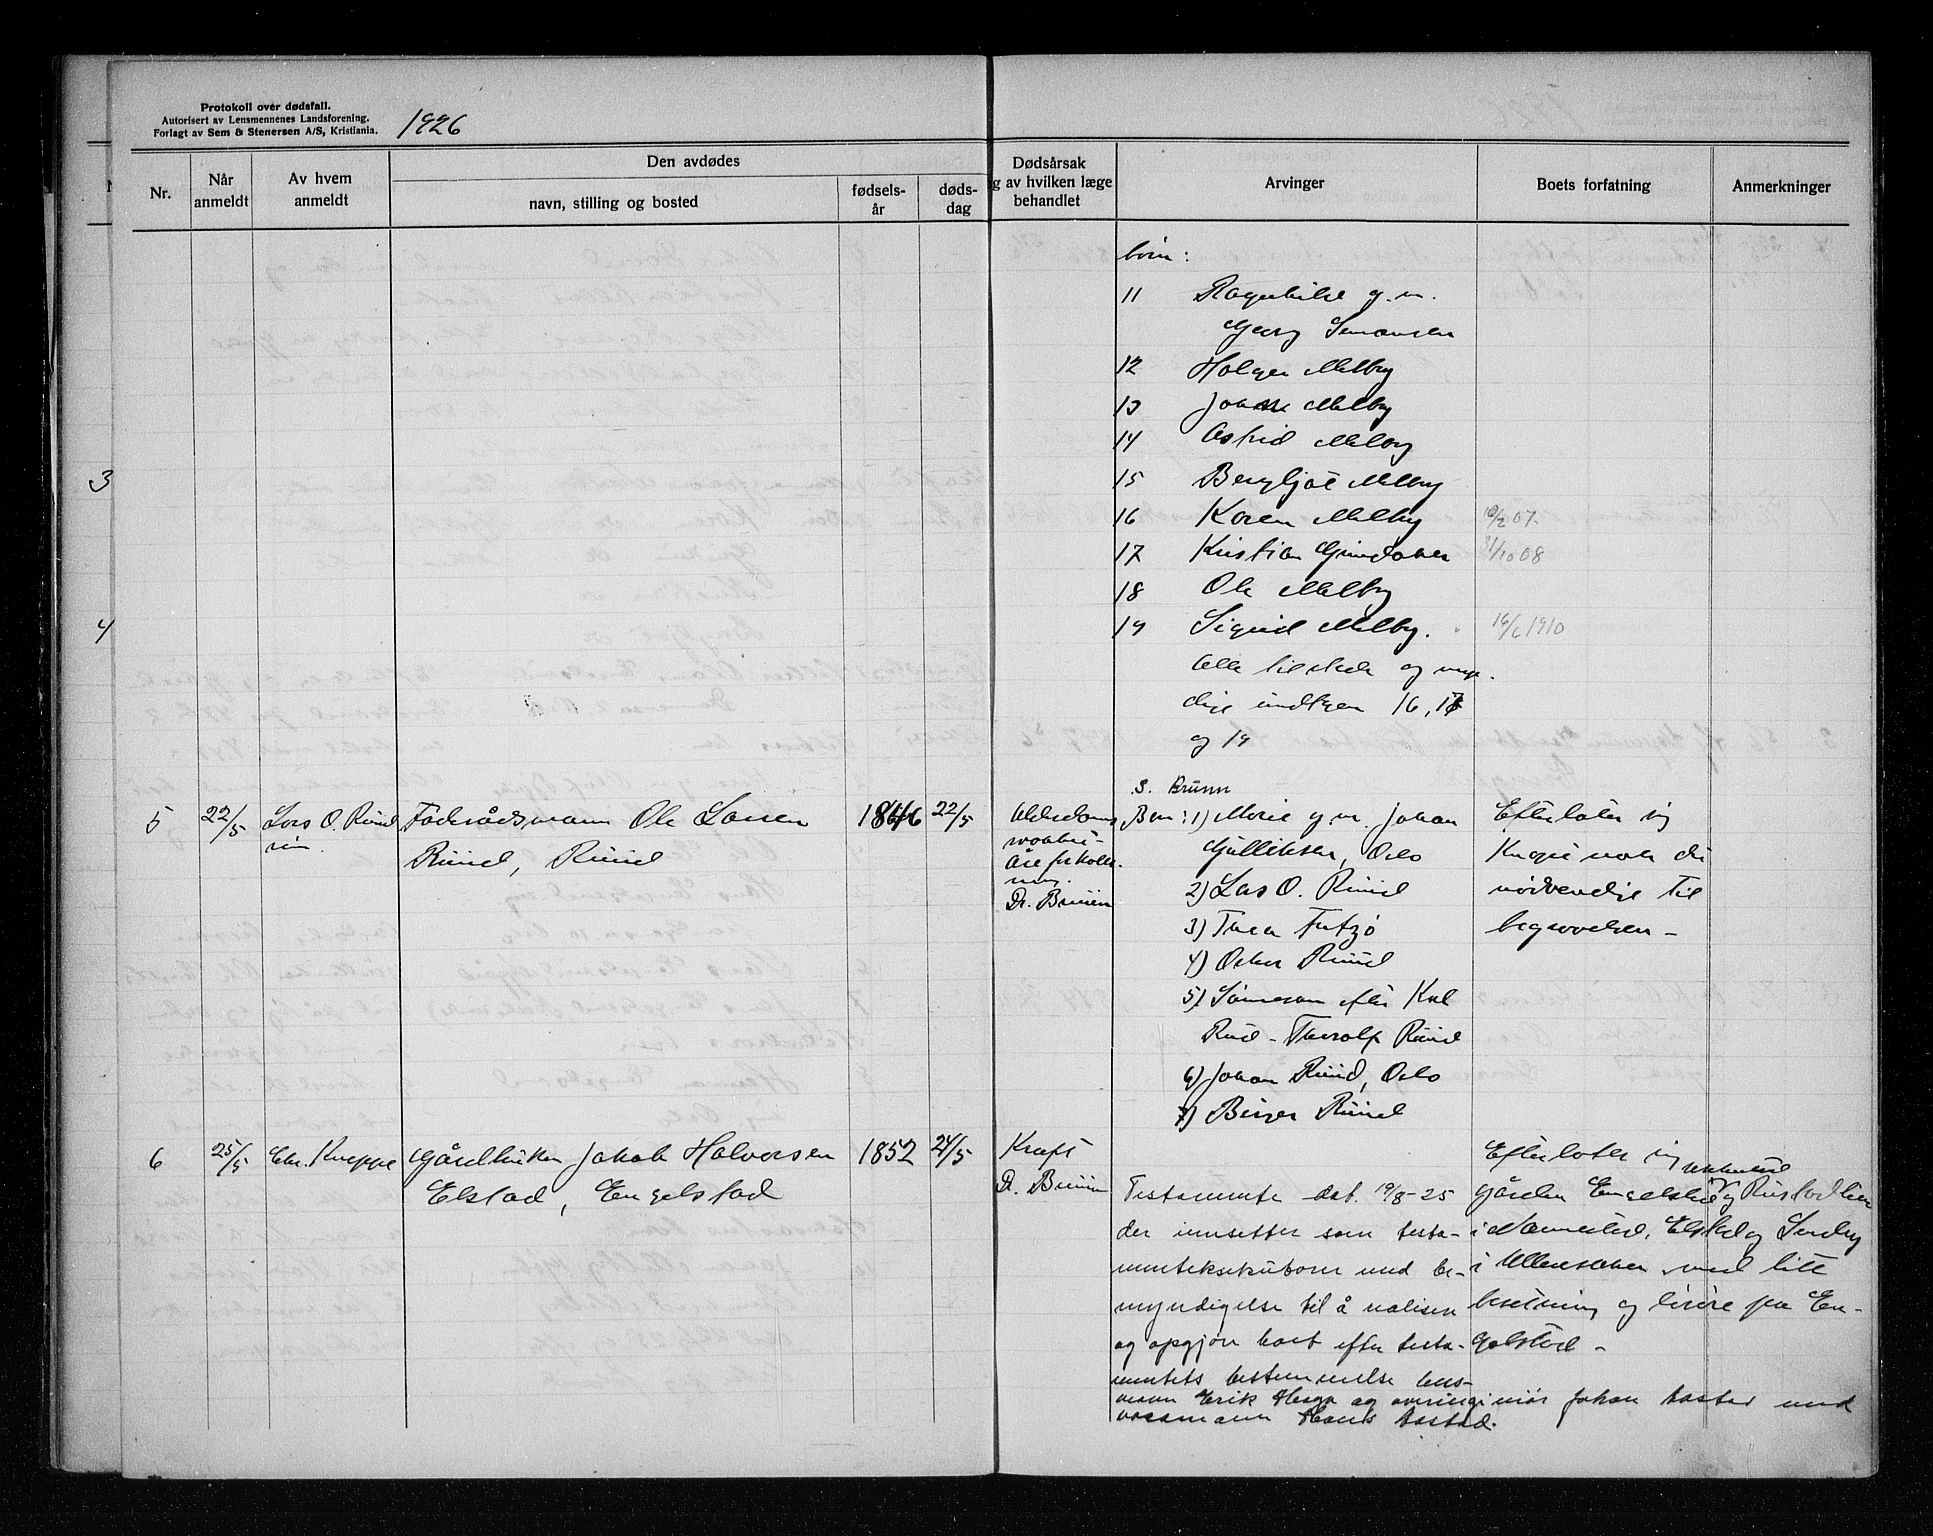 Protokoll over dødsfall.
Autorisert av Lensmennenes Landsforening.
Forlagt av Sem & Stenersen A/S, Kristiania.
1926
Nr.
Når anmeldt
Av hvem anmeldt
Den avdødes
navn, stilling og bosted
fødsels-
år
døds-
dag
Dødsårsak
og av hvilken læge
behandlet
Arvinger
Boets forfatning
Anmerkninger
3
4
børn:
11 Ragnhild g.m.
Georg Simensen
12 Holger Melby
13 Johan Melby
14 Astrid Melby
15 Bergljot Melby
16 Karen Melby 10/2 07.
17 Kristian 31/10 08
18 Ole Melby
19 Sigrid Melby. 1910
Alle tilstede og myn-
dige undtagen 16, 17
og 19
5 22/5 Lars O. Ruud
Føderådsmann Ole Larsen
Ruud, Ruud
1846 22/5
Alderdoms
svakhet
Åreforkalk-
ning.
Dr. Bruun
S. Bruun
Barn: 1) Marie g.m. Johan
Gulliksen, Oslo
2) Lars O. Ruud
3) Thea
4) Oskar Ruud
5) Sønnesøn efter Karl
Rud - Thoralf Ruud
6) Johan Ruud, Oslo
7) Birger Ruud
Efterlater sig
nok det
nødvendige til
begravelsen -
6 25/5 Chr. Kneppe
Gårdbruker Jakob Halvorsen
Elstad, Engelstad
1852 24/5
Kreft
Dr. Bruun
Testamente dat. 19/8-25
der innsetter som testa-
menteksekutorer med be-
myndigelse til å realisere
og opgjøre boet efter testa-
mentets bestemmelse lens-
mann Erik Haga og overingeniør Johan Aastad med
varamann Hans Aastad.
Efterlater sig
gården Engelstad og
i Nannestad, Elstad og
i Ullensaker med litt
besetning og løsøre på En-
gelstad -